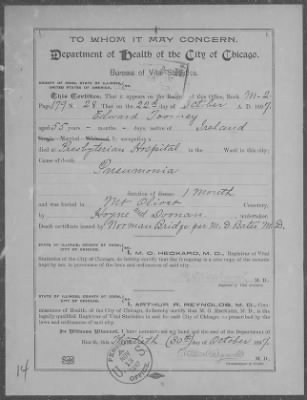 TO WHOM IT MAY CONCERN.
Department of Health of the City of Chicago.
Bureau of Vital Statistics.
COUNTY OF COOK, STATE OF ILLINOIS,
UNITED STATES OF AMERICA.
This Certifies, That it appears on the of this Office, Book M-2
Page 179 N. 28 That on the 22d day of October A. D. 1897.
Edward
aged 55 years - months - days, native of Ireland
occupying a
died at Presbyterian Hospital in the Ward in this city;
Cause of death
Pneumonia
duration of disease 1 Month
and was buried in Mt Olivet Cemetery,
by Hoyne and Noonan undertaker.
Death certificate issued by Norman Bridge per M. D. Bates M.D.
STATE OF ILLINOIS, COUNTY OF COOK,
CITY OF CHICAGO.
I, M. O. HECKARD, M. D., Registrar of Vital
Statistics of the City of Chicago, do hereby certify that the foregoing is a true copy of the records
kept by me in pursuance of the laws and ordinances of said city.
M. D.
Registrar of Vital Statistics.
STATE OF ILLINOIS, COUNTY OF COOK,
CITY OF CHICAGO.
I, ARTHUR R. REYNOLDS, M. D., Com-
missioner of Health, of the City of Chicago, do hereby certify that M. O. HECKARD, M. D., is the
legally qualified Registrar of Vital Statistics in and for said City of Chicago, as prescribed by the
laws and ordinances of said city.
In Witness Whereof, I have hereunto set my hand and the seal of the Department of
Health, this Thirtieth (30th) day of October 1897.
M. D.
Commissioner of Health.
U S
OFFICE
14